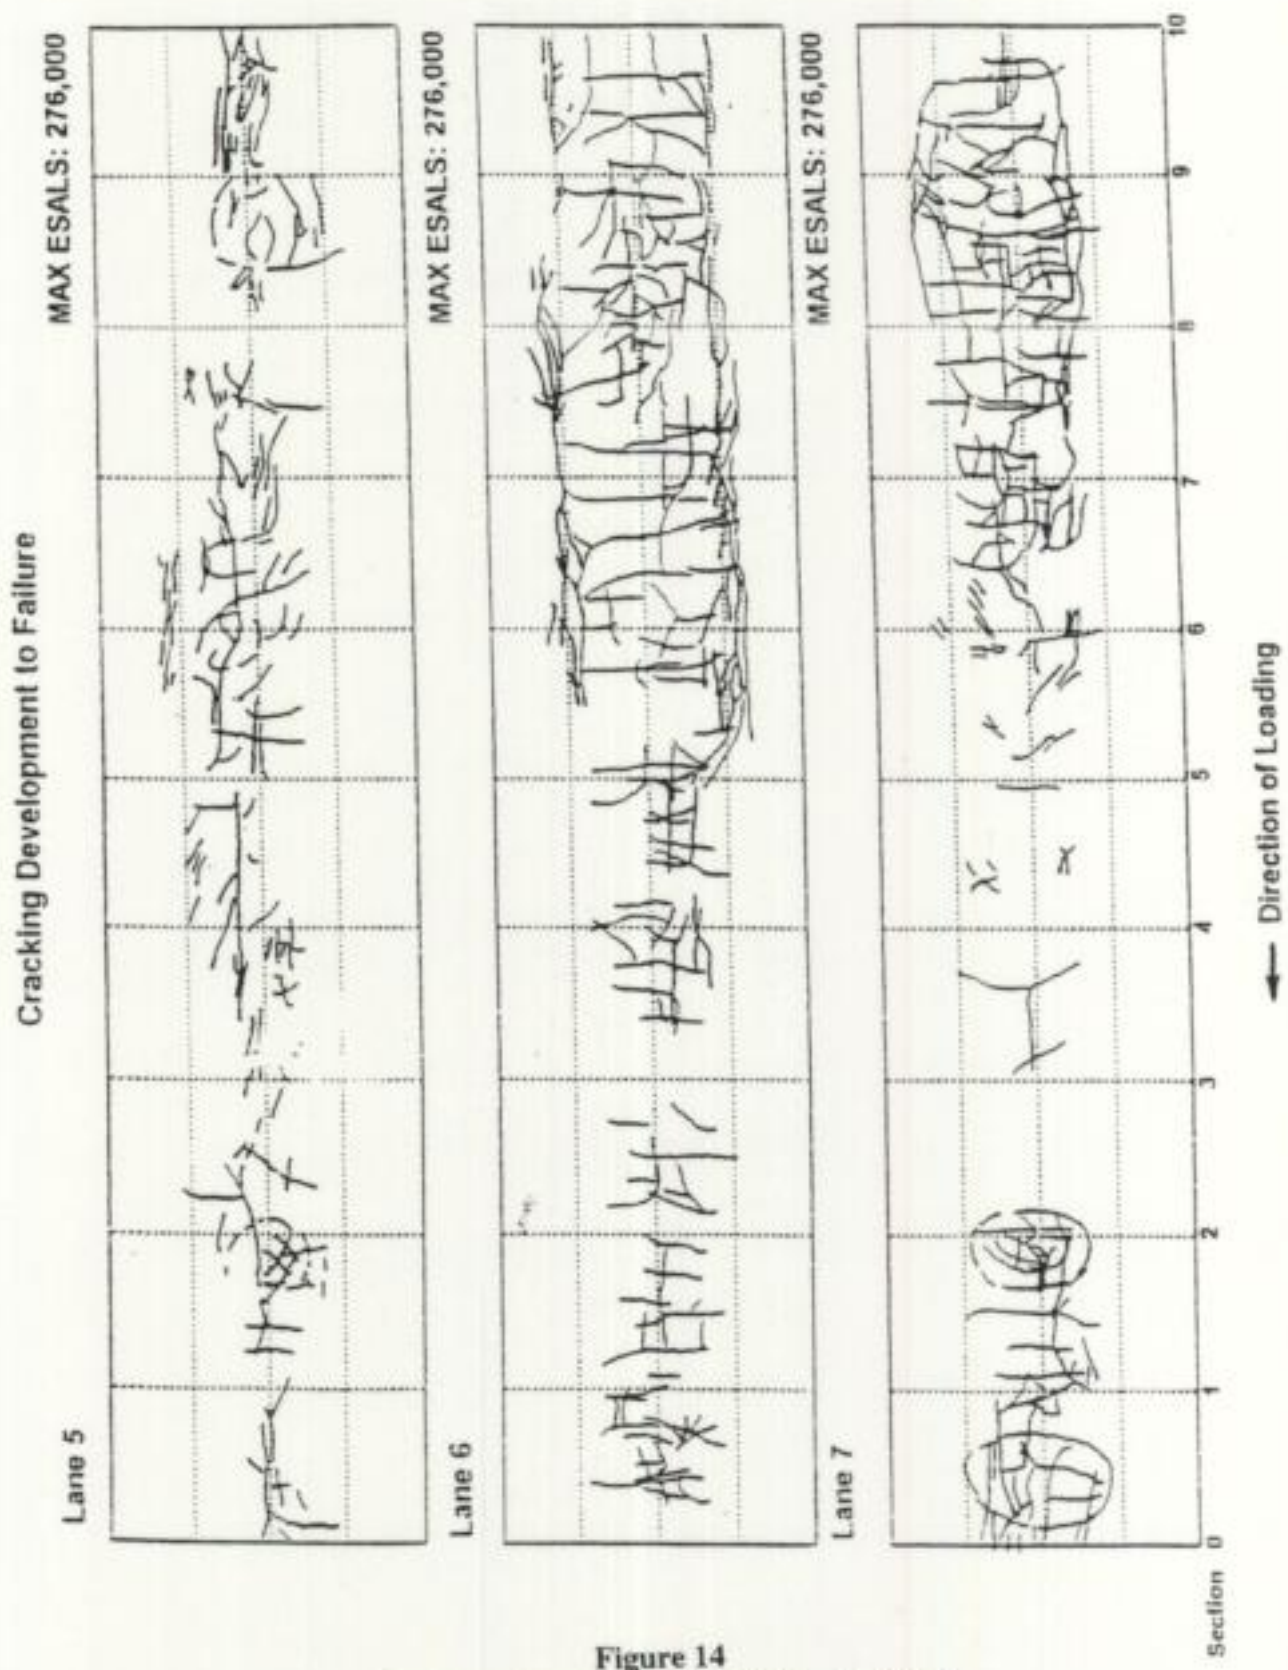 Cracking Development to Failure
Lane 5
MAX ESALS: 276,000
Lane 6
MAX ESALS: 276,000
Lane 7
MAX ESALS: 276,000
Section 0 1 2 3 4 5 6 7 8 9 10
← Direction of Loading
Figure 14